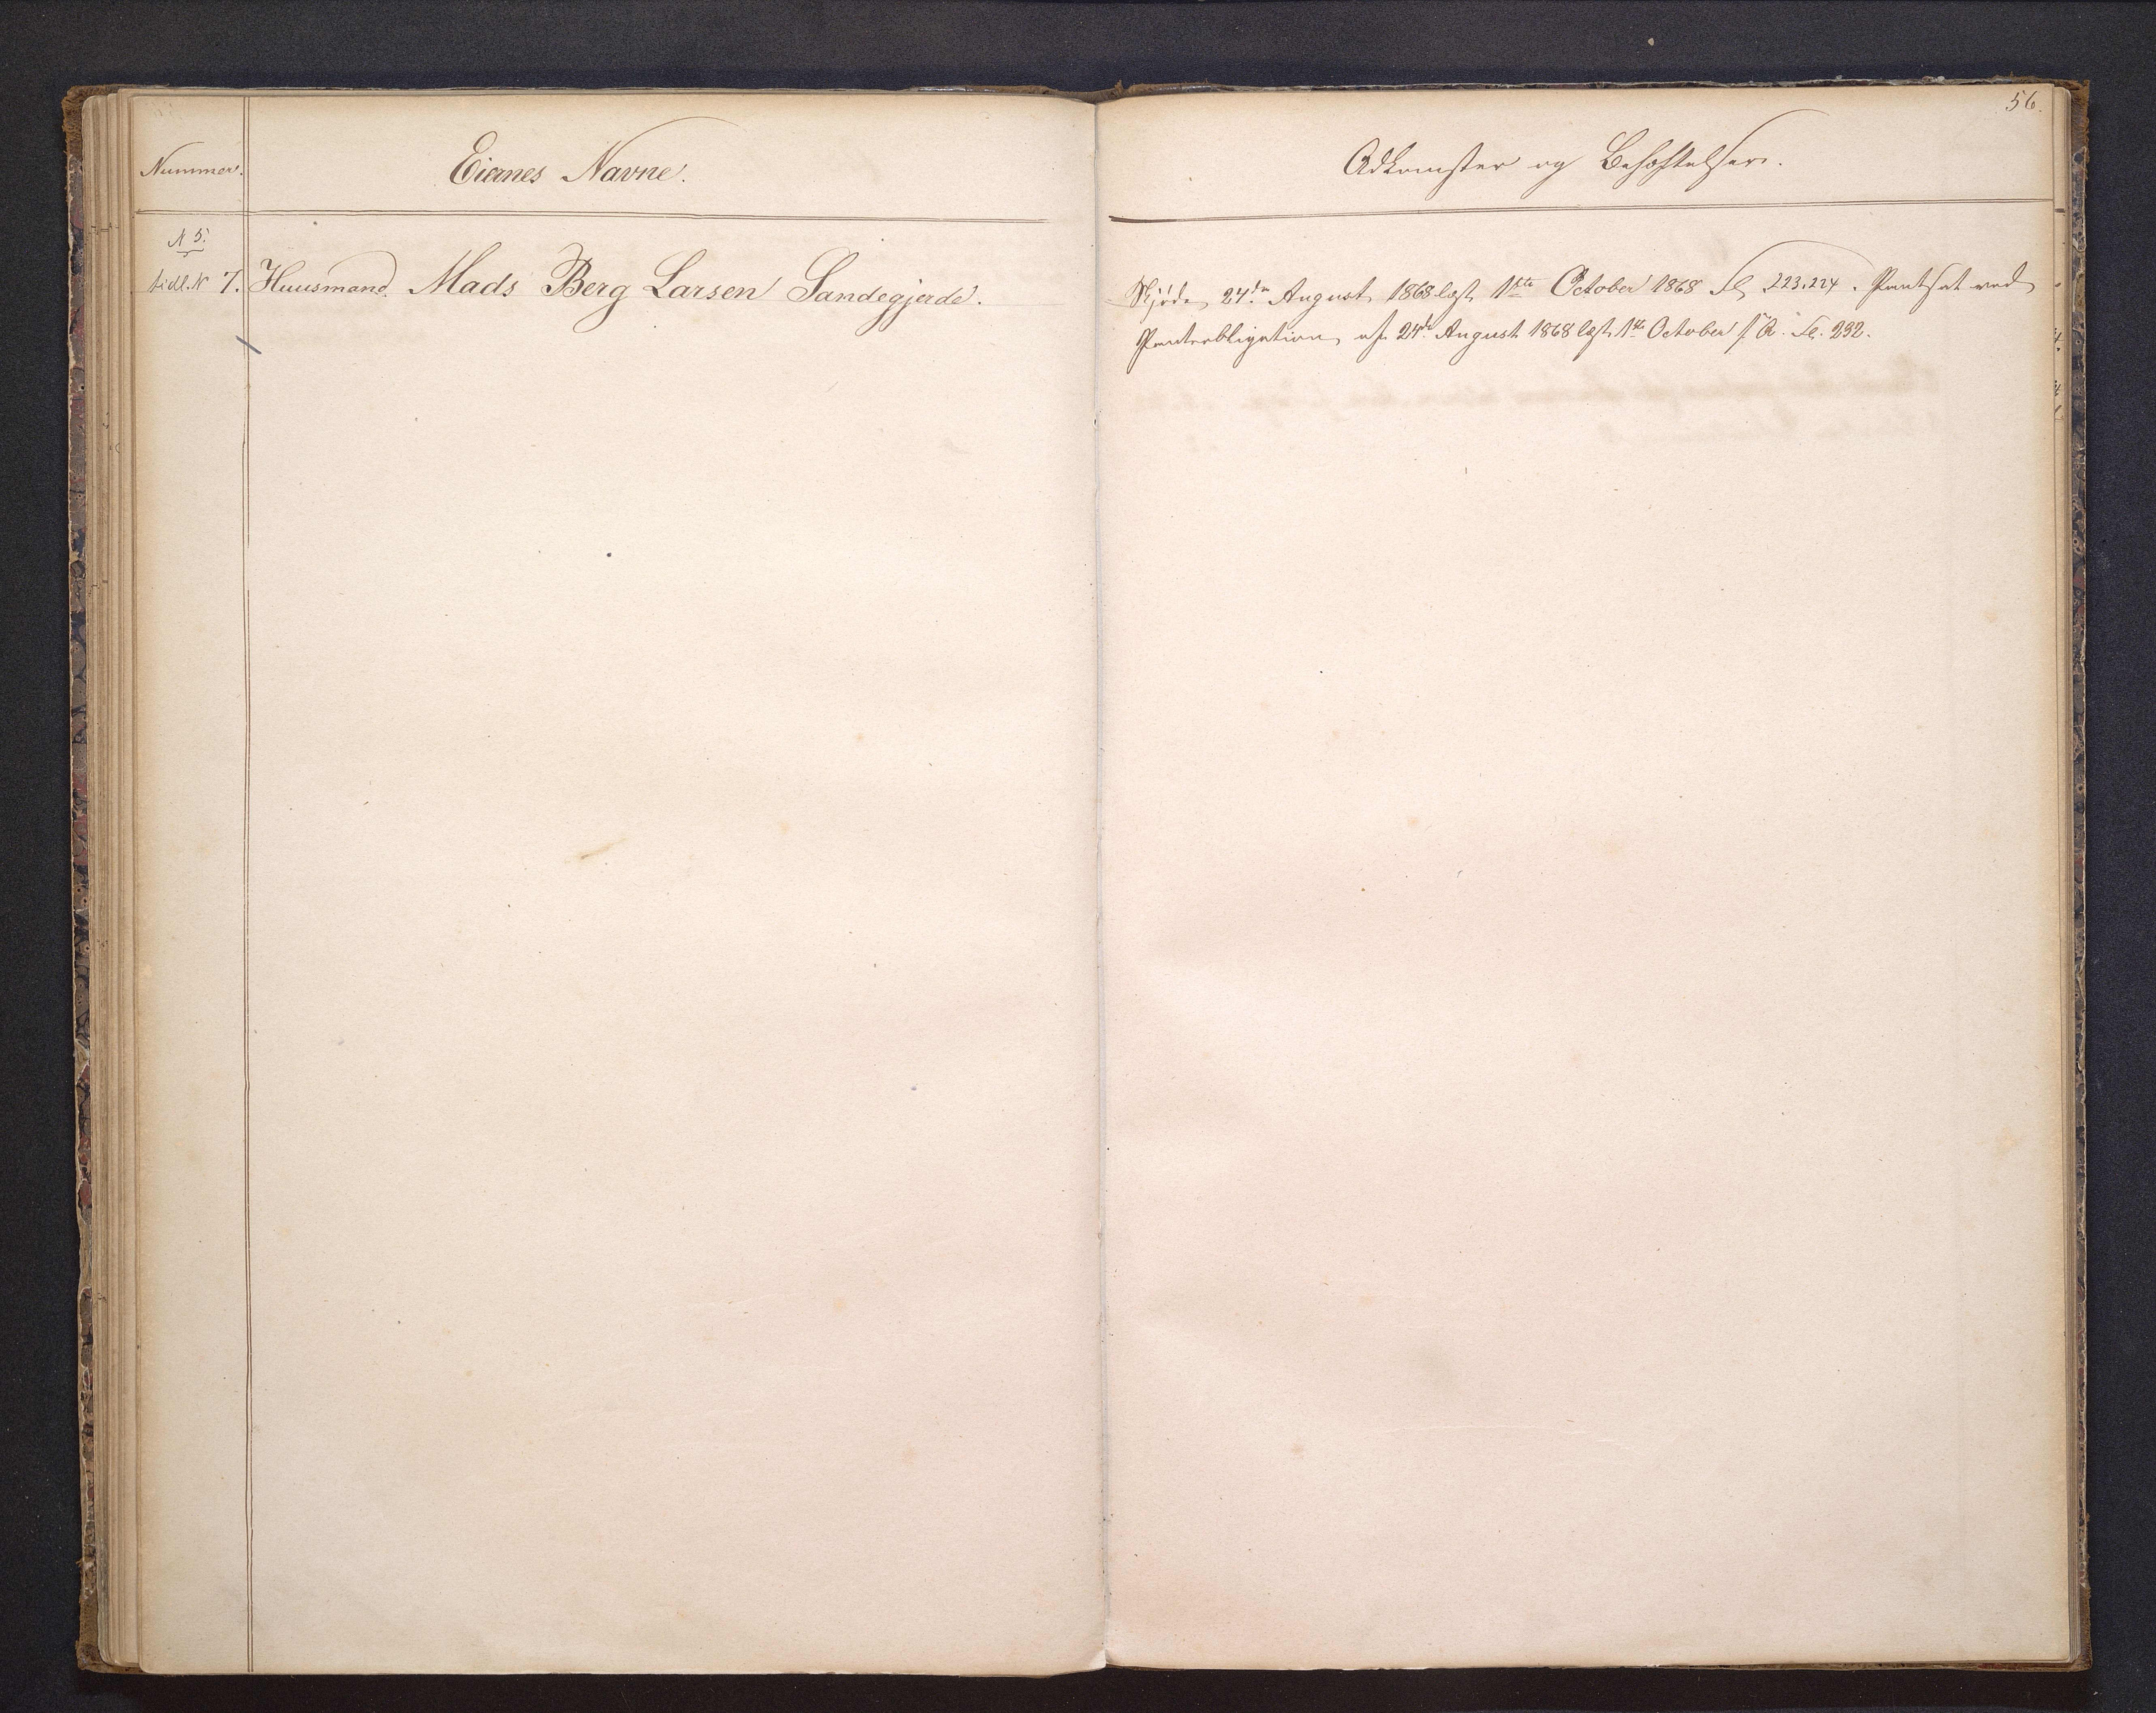 56.
Nummer.
Eiernes Navne.
Adkomster og Behæftelser.
N 5.
tidl. N 7. Huusmand. Mads Berg Larsen Sandegjerde.
Skjøde 24de August 1868 læst 1ste October 1868 Fol 223.224. Pantsat ved
Panteobligation af 24de August 1868 læst 1ste October s. A. Fol. 232.